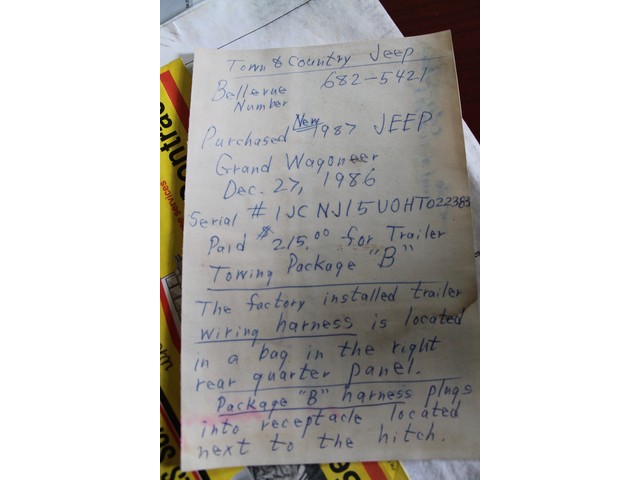 Town & Country Jeep
Bellevue 682-5421
Number
Purchased New 1987 JEEP
Grand Wagoneer
Dec. 27, 1986
Serial # 1JCNJ15U0HT022383
Paid $215.00 for Trailer
Towing Package "B"
The factory installed trailer
wiring harness is located
in a bag in the right
rear quarter panel.
Package "B" harness plugs
into receptacle located
next to the hitch.
ontrac
e services